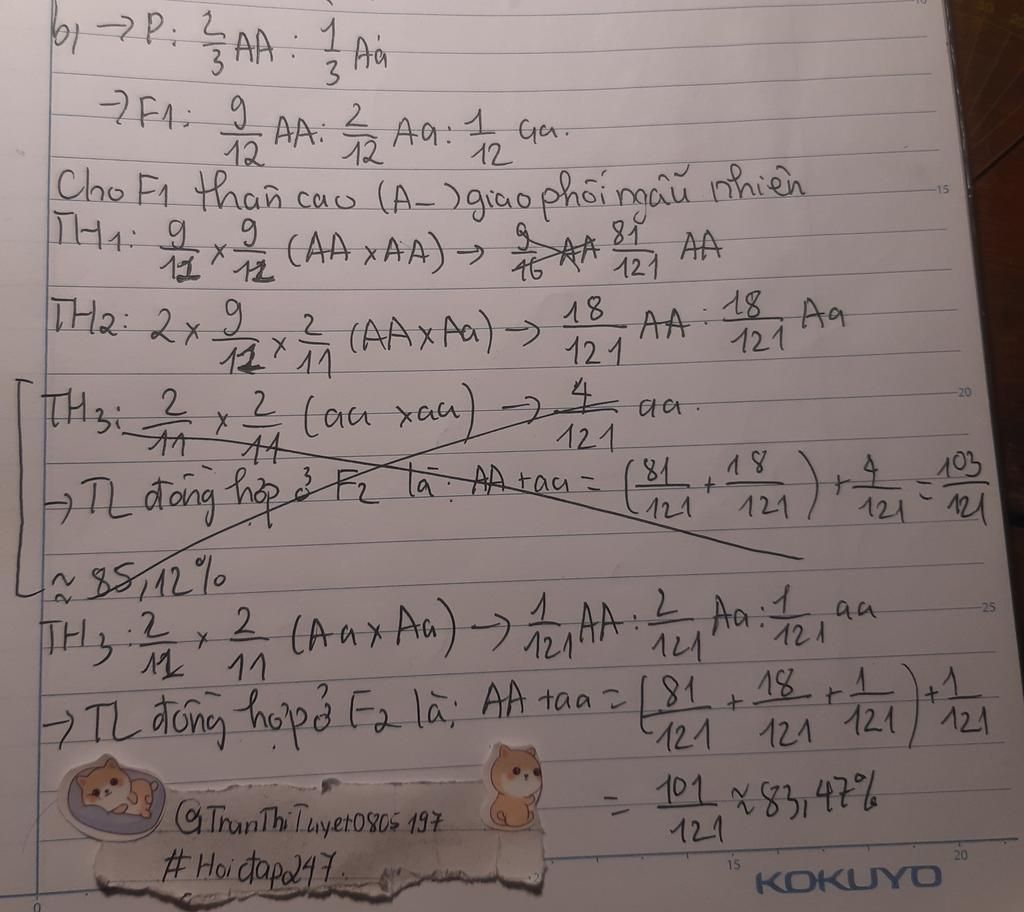 b) → P: 2/3 AA : 1/3 Aa
→ F1: 9/12 AA : 2/12 Aa : 1/12 aa.
Cho F1 thân cao (A-) giao phối ngẫu nhiên
TH1: 9/11 × 9/11 (AA × AA) → 9/16 AA 81/121 AA
TH2: 2 × 9/11 × 2/11 (AA × Aa) → 18/121 AA : 18/121 Aa
TH3: 2/11 × 2/11 (aa × aa) → 4/121 aa.
→ TL đồng hợp ở F2 là: AA + aa = (81/121 + 18/121) + 4/121 = 103/121
≈ 85,12%
TH3: 2/11 × 2/11 (Aa × Aa) → 1/121 AA : 2/121 Aa : 1/121 aa
→ TL đồng hợp ở F2 là: AA + aa = (81/121 + 18/121 + 1/121) + 1/121
= 101/121 ≈ 83,47%
@TranThiTuyet0805197
#Hoidap247.
KOKUYO
15
20
25
15
20
0